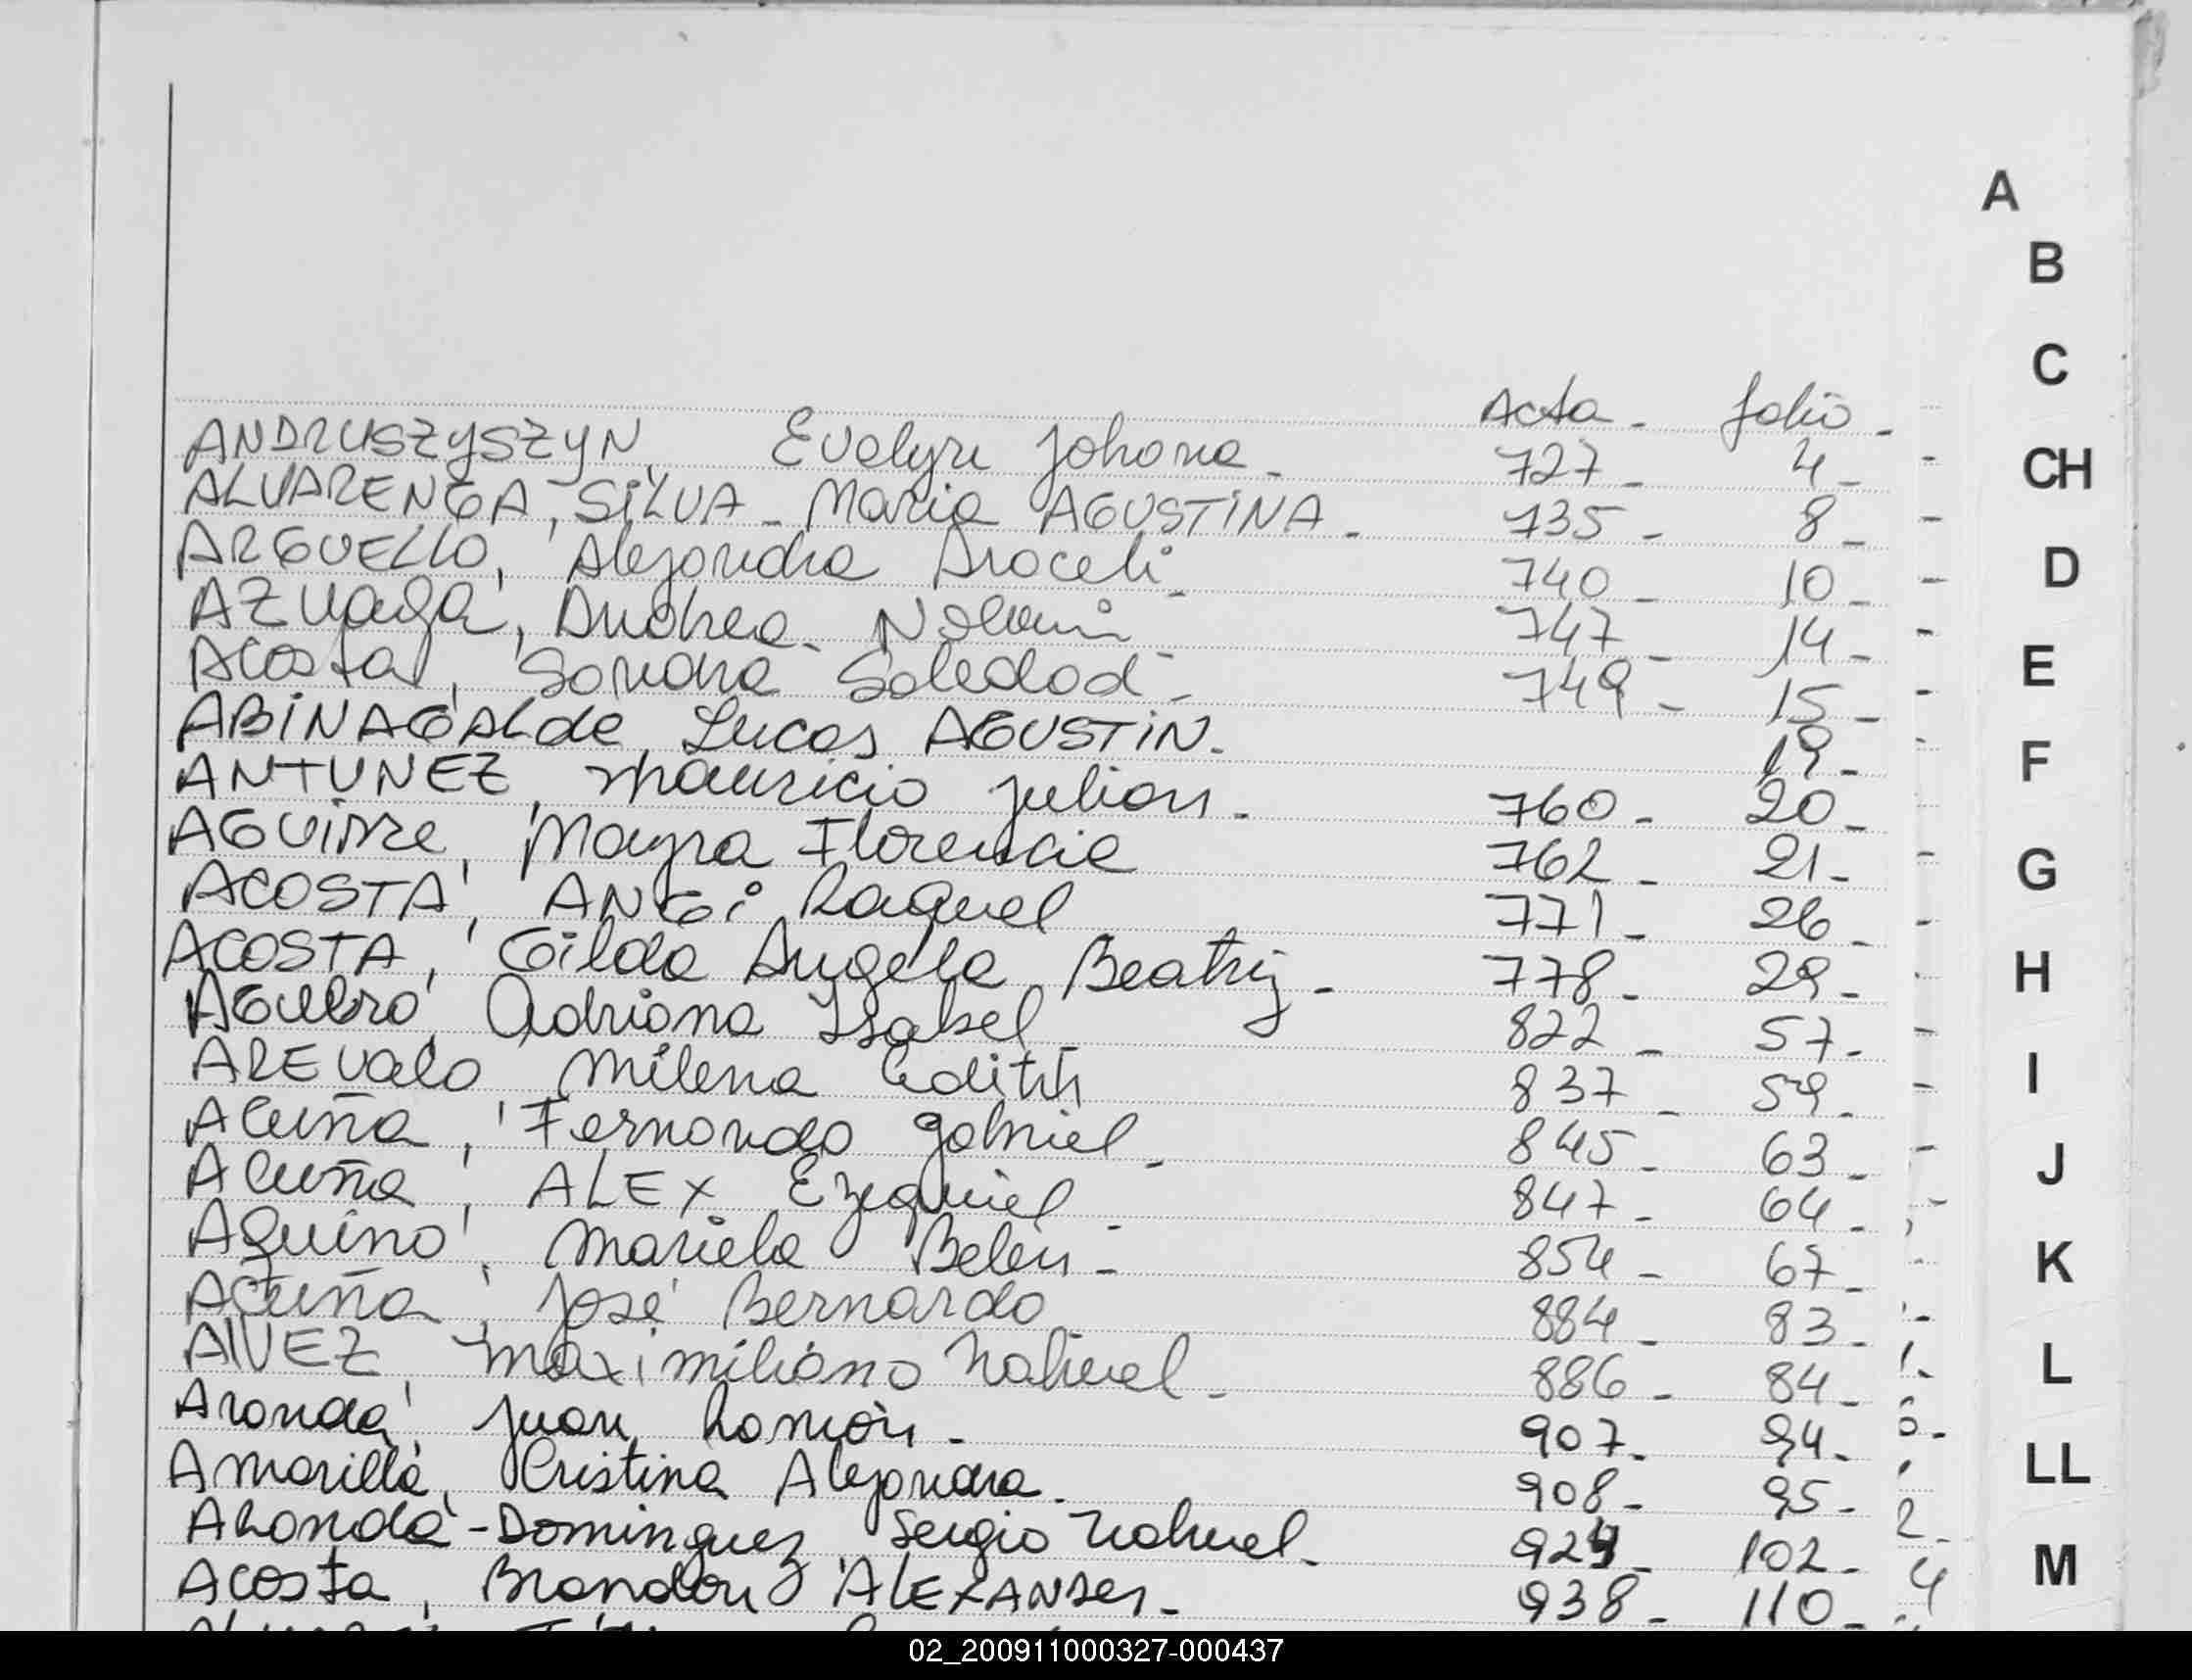 Acta - folio -
ANDRUSZYSZYN, Evelyn Johana - 727 - 4 -
ALVARENGA, SILVA - Maria AGUSTINA - 735 - 8 -
ARGUELLO, Alejandra Araceli - 740 - 10 -
AZuaga, Andrea 747 - 14 -
Acosta, Sandra Soledad - 749 - 15 -
ABINAGALde, Lucas AGUSTIN - 19 -
ANTUNEZ, Mauricio Julian - 760 - 20 -
AGUIRRe, Mayra Florencia 762 - 21 -
ACOSTA, ANGi Raquel 771 - 26 -
ACOSTA, Gilda Angela Beatriz - 778 - 29 -
AGuero, Adriana Isabel 822 - 57 -
AREvalo Milena Edith 837 - 59 -
Acuña, Fernando Gabriel - 845 - 63 -
Acuña, ALEX Ezequiel - 847 - 64 -
Aquino, Mariela Belen - 854 - 67 -
Acuña, José Bernardo 884 - 83 -
AlVEZ, Maximiliano Nahuel - 886 - 84 -
Aranda, Juan Ramón - 907 - 94 -
Amarilla, Cristina Alejandra - 908 - 95 -
ARanda - Dominguez Sergio Nahuel - 924 - 102 -
Acosta, Brandon ALEXANder - 938 - 110 -
A
B
C
CH
D
E
F
G
H
I
J
K
L
LL
M
02_200911000327-000437